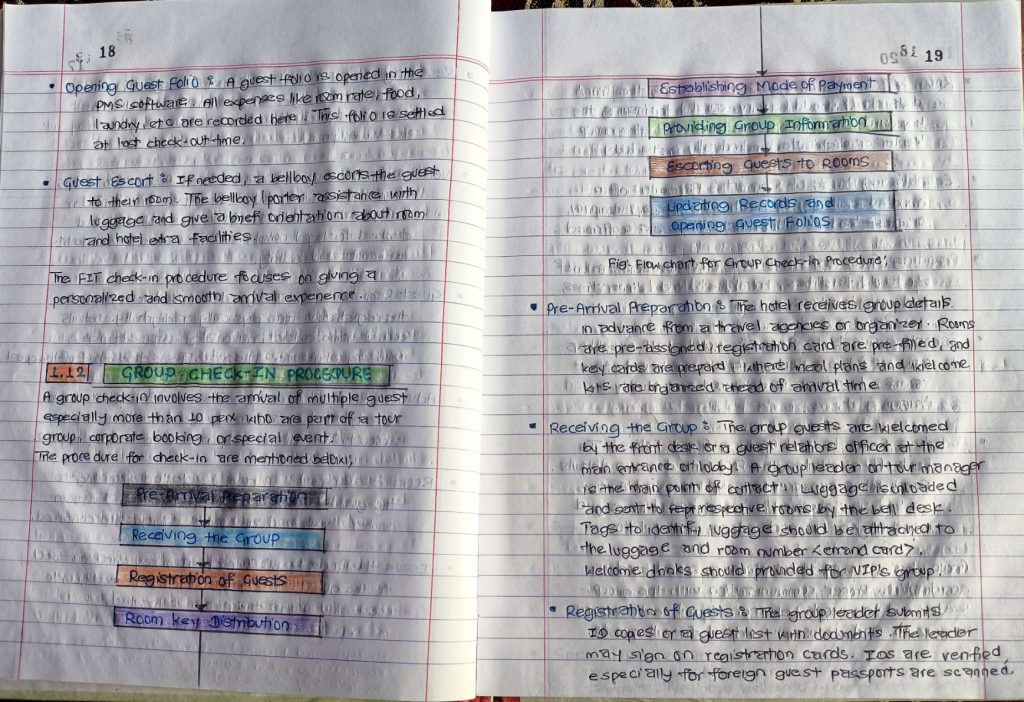 18
• Opening Guest Folio : A guest folio is opened in the
PMS software. All expenses like room rate, food,
laundry, etc are recorded here. This folio is settled
at last check-out time.
• Guest Escort : If needed, a bellboy escorts the guest
to their room. The bellboy (porter assistance with
luggage and give a brief orientation about room
and hotel extra facilities.
The FIT check-in procedure focuses on giving a
personalized and smooth arrival experience.
1.12 GROUP CHECK-IN PROCEDURE
A group check-in involves the arrival of multiple guest
especially more than 10 pax who are part of a tour
group, corporate booking, or special event.
The procedure for check-in are mentioned below;
Pre-Arrival Preparation
Receiving the Group
Registration of Guests
Room Key Distribution
19
Establishing Mode of Payment
Providing Group Information
Escorting Guests to Rooms
Updating Records and
Opening Guest Folios
Fig: Flowchart for Group Check-in Procedure;
• Pre-Arrival Preparation : The hotel receives group details
in advance from a travel agencies or organizer. Rooms
are pre-assigned, registration card are pre-filled, and
key cards are prepard. Where meal plans and welcome
kits are organized ahead of arrival time.
• Receiving the Group : The group guests are welcomed
by the front desk or a guest relations officer at the
main entrance or lobby. A group leader or tour manager
is the main point of contact. Luggage is unloaded
and sent to respective rooms by the bell desk.
Tags to identify luggage should be attached to
the luggage and room number <errand card>.
Welcome drinks should provided for VIP's group.
• Registration of Guests : The group leader submits
ID copies or a guest list with documents. The leader
may sign on registration cards. IDs are verified,
especially for foreign guest passports are scanned.